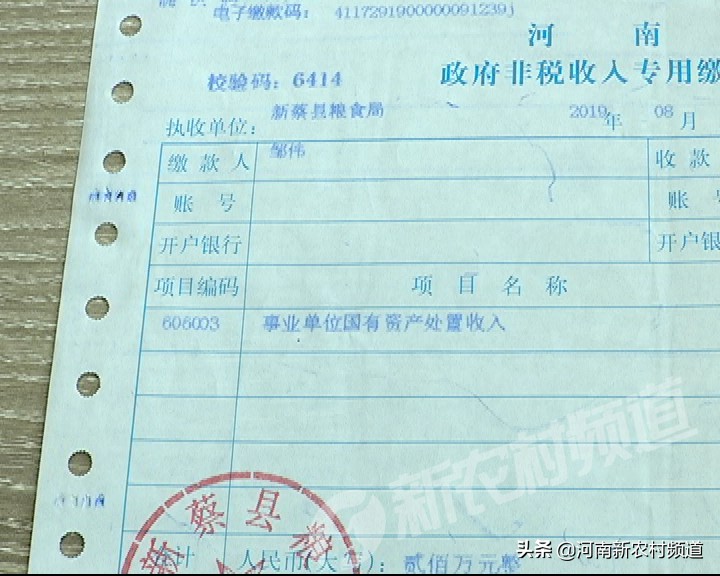 电子缴款码: 4117291900000091239j
河 南
校验码: 6414
政府非税收入专用缴
执收单位: 新蔡县粮食局 2019年 08月
缴款人 邹伟 收款
账号 账号
开户银行 开户银
项目编码 项目名称
606003 事业单位国有资产处置收入
新农村频道
新蔡县
合计 人民币(大写): 贰佰万元整
头条 @河南新农村频道